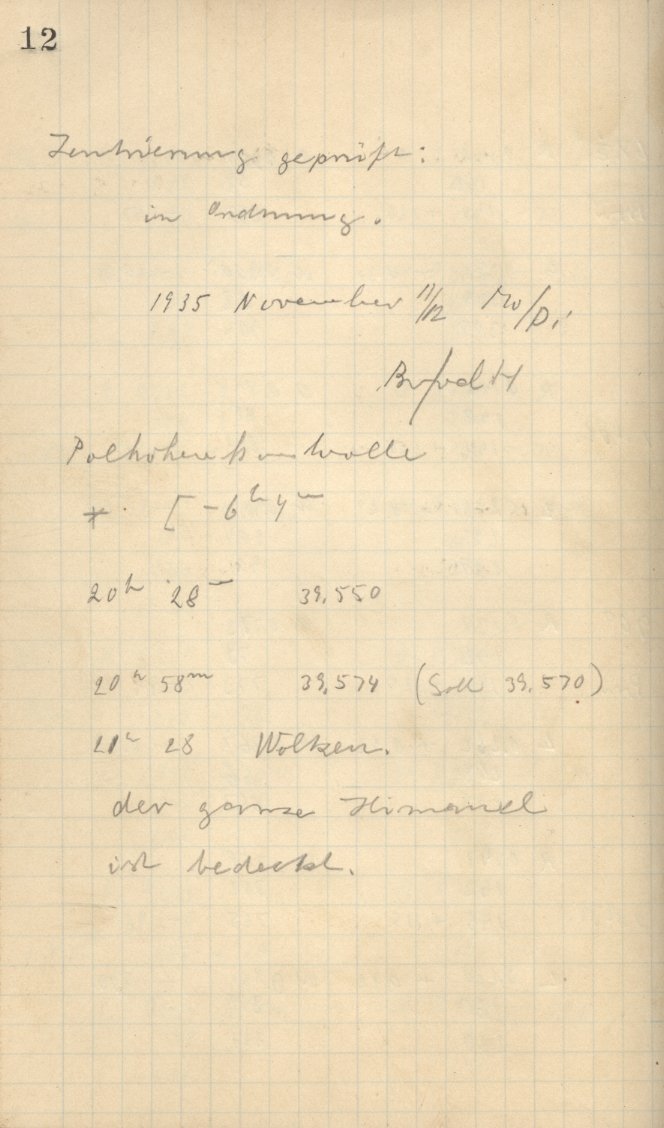 12
Zentrierung geprüft:
in Ordnung.
1935 November 11/12 Mo/Di
Polhöhenkontrolle
* [ -6h 4m
20h 28m 39,550
20h 58m 39,574 (Soll 39,570)
21h 28 Wolken.
der ganze Himmel
ist bedeckt.